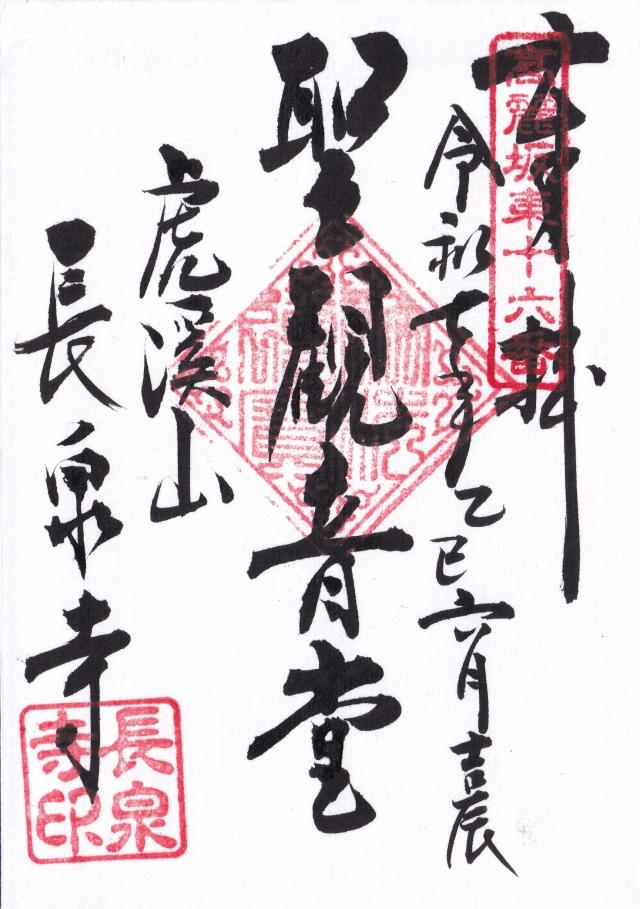 奉拝
高麗坂東十六番
令和七年乙巳六月吉辰
聖観音堂
虎渓山
長泉寺
長泉寺印